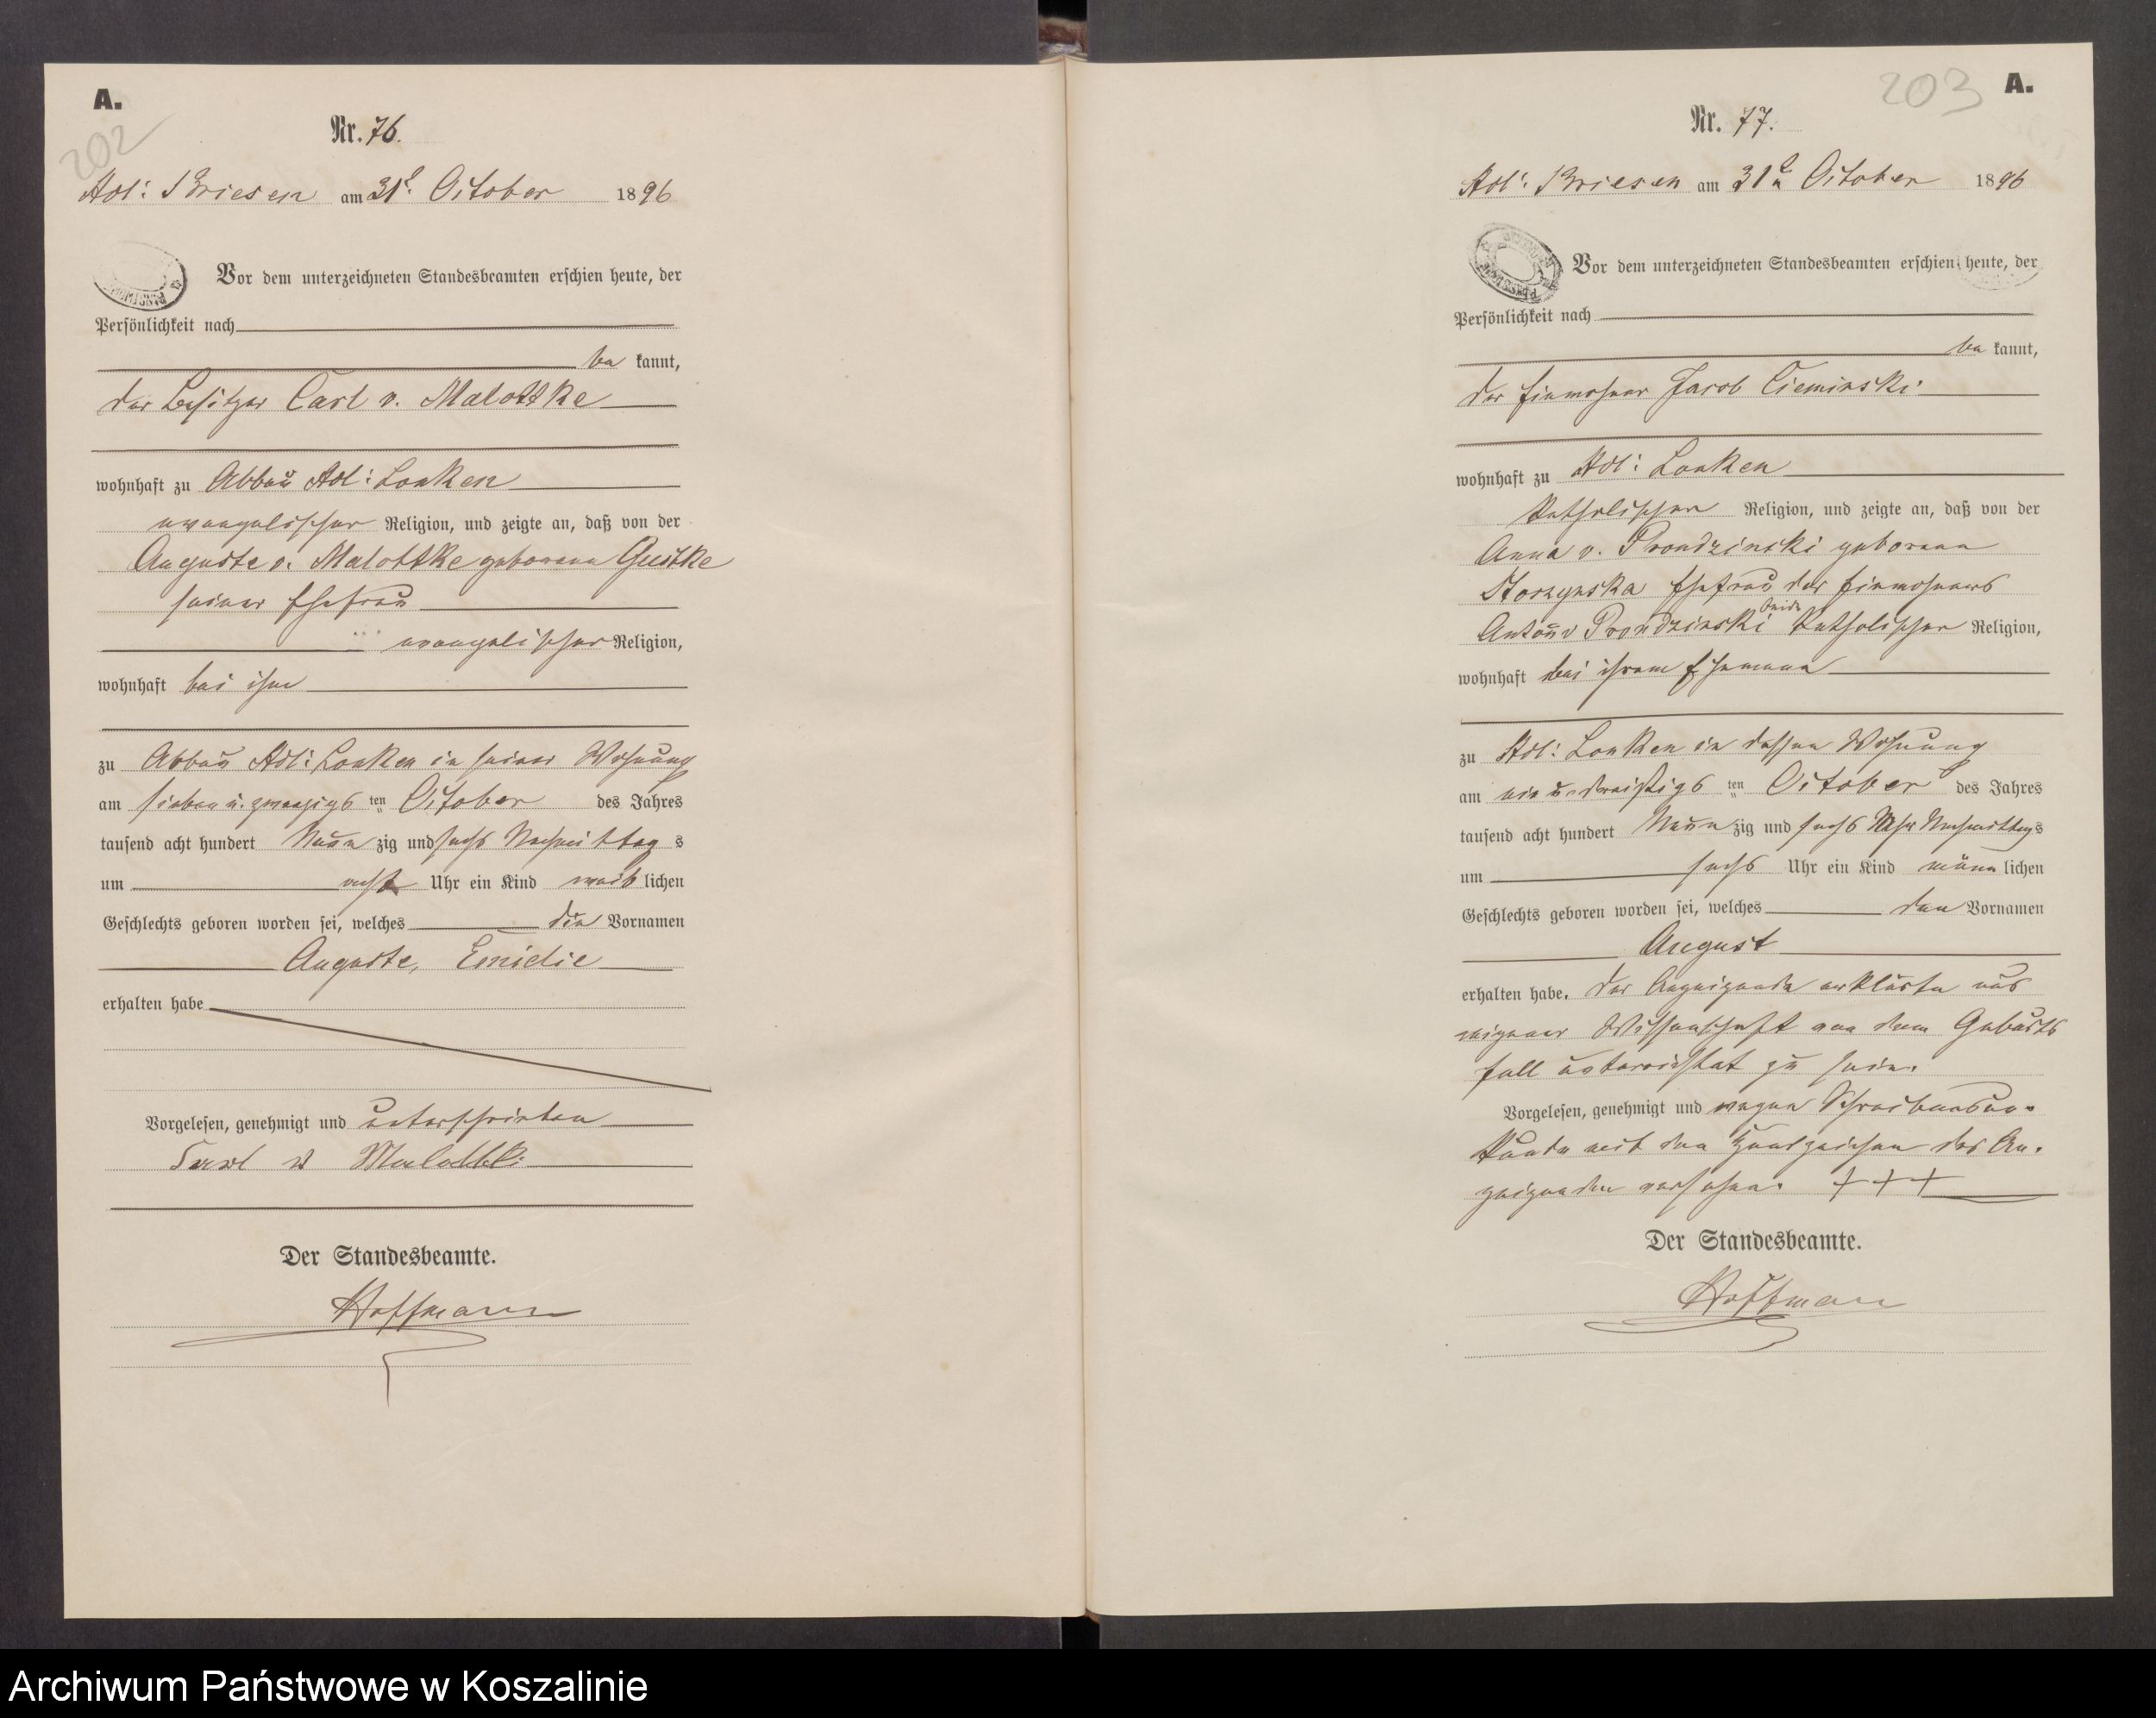 A.
202
Nr. 76.
Adl: Briesen am 31t October 1896
Vor dem unterzeichneten Standesbeamten erschien heute, der
Persönlichkeit nach
be kannt,
der Besitzer Carl v. Malottke
wohnhaft zu Abbau Adl: Lonken
evangelischer Religion, und zeigte an, daß von der
Auguste v. Malottke geborene Gustke
seiner Ehefrau
evangelischer Religion,
wohnhaft bei ihm
zu Abbau Adl: Lonken in seiner Wohnung
am sieben u. zwanzigs ten October des Jahres
tausend acht hundert Neun zig und sechs Nachmittag s
um acht Uhr ein Kind weib lichen
Geschlechts geboren worden sei, welches die Vornamen
Auguste, Emielie
erhalten habe
Vorgelesen, genehmigt und unterschrieben
Carl v Malottki
Der Standesbeamte.
Hoffmann
203
A.
Nr. 77.
Adl: Briesen am 31t October 1896
Vor dem unterzeichneten Standesbeamten erschien heute, der
Persönlichkeit nach
be kannt,
der Einwohner Jacob Cieminski
wohnhaft zu Adl: Lonken
katholischer Religion, und zeigte an, daß von der
Anna v. Prondzinski geborene
Ehefrau des Einwohners
beide
Anton v Prondzinski katholischer Religion,
wohnhaft bei ihrem Ehemann
zu Adl: Lonken in dessen Wohnung
am ein u. dreißigs ten October des Jahres
tausend acht hundert Neun zig und sechs Nachmittags
um sechs Uhr ein Kind männ lichen
Geschlechts geboren worden sei, welches den Vornamen
August
erhalten habe. Der Anzeigende erklärte aus
eigener Wissenschaft von dem Geburts
fall unterrichtet zu sein.
Vorgelesen, genehmigt und wegen Schreibensun-
kunde mit den Handzeichen des An-
zeigenden versehen. +++
Der Standesbeamte.
Hoffmann
Archiwum Państwowe w Koszalinie